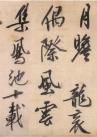 月瞻龍袞
偶際風雲
集鳳池十載